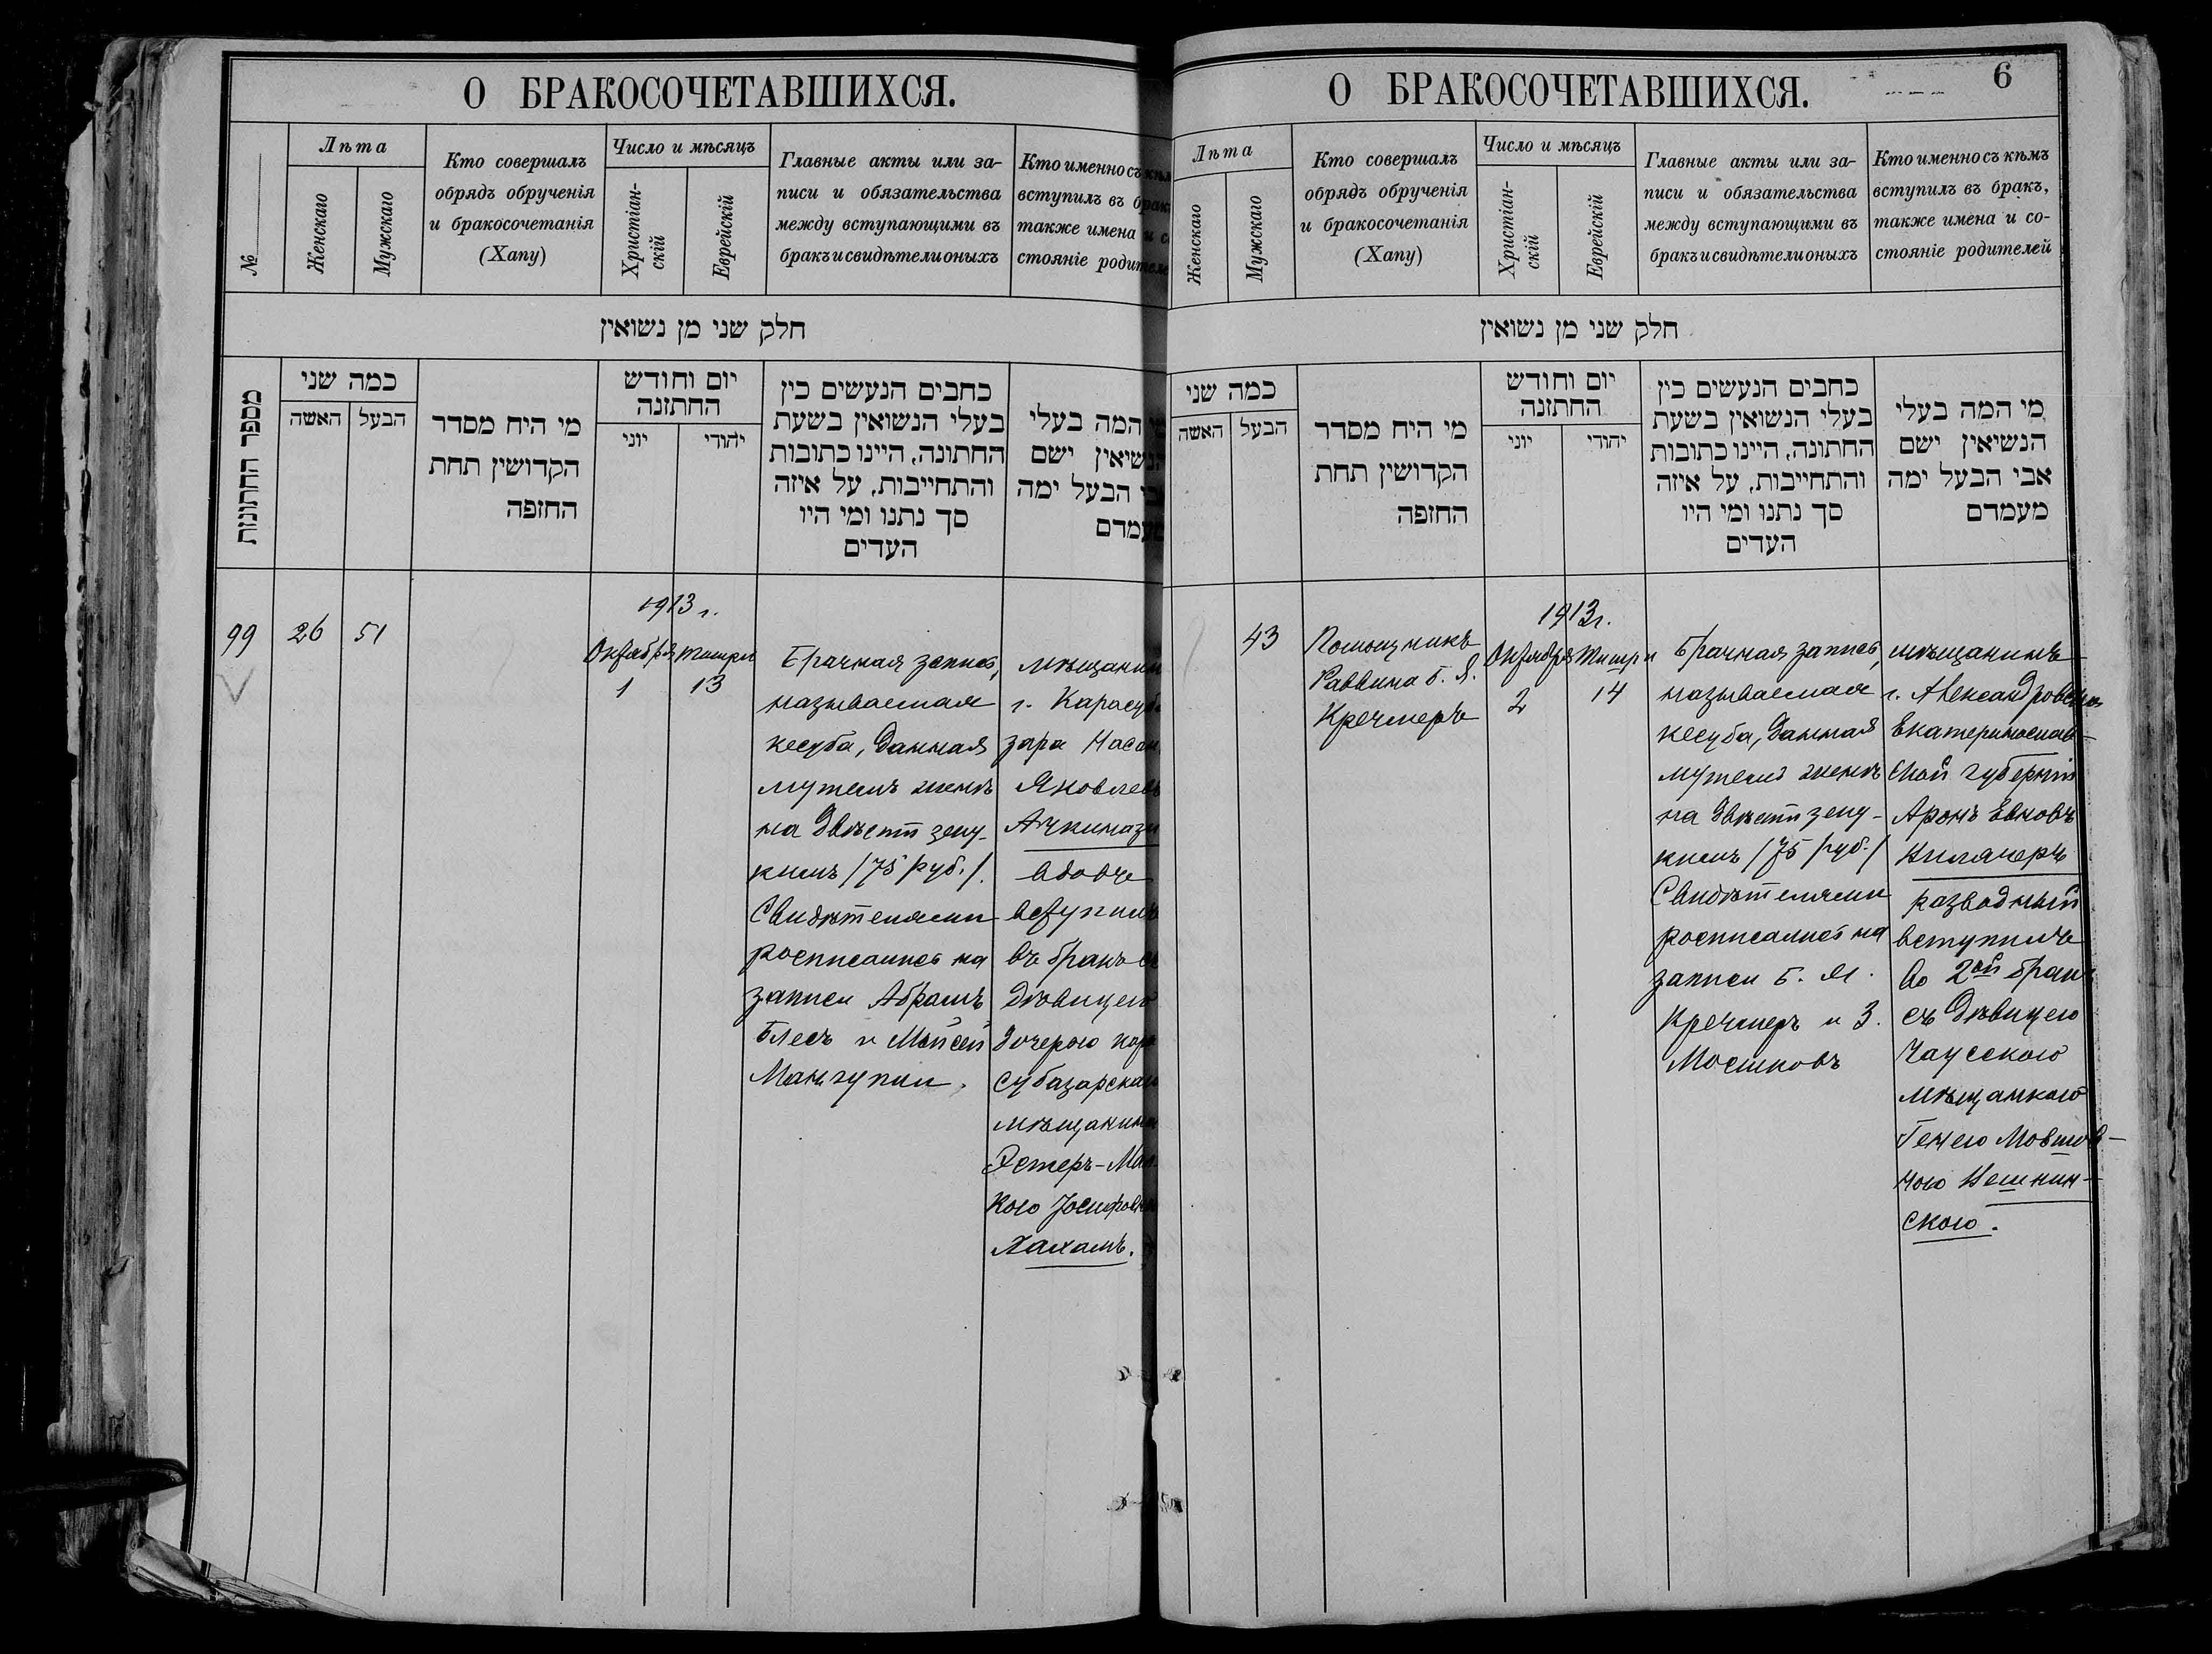 О БРАКОСОЧЕТАВШИХСЯ.
№
Лѣта
Женскаго
Мужскаго
Кто совершалъ
обрядъ обрученія
и бракосочетанія
(Хапу)
Число и мѣсяцъ
Христіан-
скій
Еврейскій
Главные акты или за-
писи и обязательства
между вступающими въ
бракъ и свидѣтели оныхъ
Кто именно съ
вступилъ въ
также имена
стояніе
חלק שני מן נשואין
מספר החתונות
כמה שני
האשה
הבעל
מי היח מסדר
הקדושין תחת
החופה
יום וחודש
החתונה
יוני
יהודי
כתבים הנעשים בין
בעלי הנשואין בשעת
החתונה, היינו כתובות
והתחייבות, על איזה
סך נתנו ומי היו
העדים
המה בעלי
ישם
הבעל ימה
99
26
51
1913 г.
Октября
1
Тишри
13
Брачная запись,
называемая
кесуба, данная
мужемъ женѣ
на двѣсти зезу-
кимъ /75 руб./.
Свидѣтелями
росписались на
записи Абрамъ
Блесъ и Мойсей
Мангупли.
г.
зара
вдовъ
въ бракъ
дѣвицею
дочерью
Эстеръ-
кою
Хахамъ.
О БРАКОСОЧЕТАВШИХСЯ.
6
Лѣта
Женскаго
Мужскаго
Кто совершалъ
обрядъ обрученія
и бракосочетанія
(Хапу)
Число и мѣсяцъ
Христіан-
скій
Еврейскій
Главные акты или за-
писи и обязательства
между вступающими въ
бракъ и свидѣтели оныхъ
Кто именно съ кѣмъ
вступилъ въ бракъ,
также имена и со-
стояніе родителей
חלק שני מן נשואין
כמה שני
האשה
הבעל
מי היח מסדר
הקדושין תחת
החופה
יום וחודש
החתונה
יוני
יהודי
כתבים הנעשים בין
בעלי הנשואין בשעת
החתונה, היינו כתובות
והתחייבות, על איזה
סך נתנו ומי היו
העדים
מי המה בעלי
הנשיאין ישם
אבי הבעל ימה
מעמדם
43
Помощникъ
Раввина Б. Я.
Кречмеръ
1913 г.
Октября
2
Тишри
14
Брачная запись,
называемая
кесуба, данная
мужемъ женѣ
на двѣсти зезу-
кимъ /75 руб./
Свидѣтелями
росписались на
записи Б. Я.
Кречмеръ и З.
Мосшковъ
мѣщанинъ
г. Александровска
Екатеринослав-
ской губерніи
Аронъ Евновъ
разводный
вступилъ
во 2ой бракъ
съ дѣвицею
Чаусскою
мѣщанкою
Генею
скою.